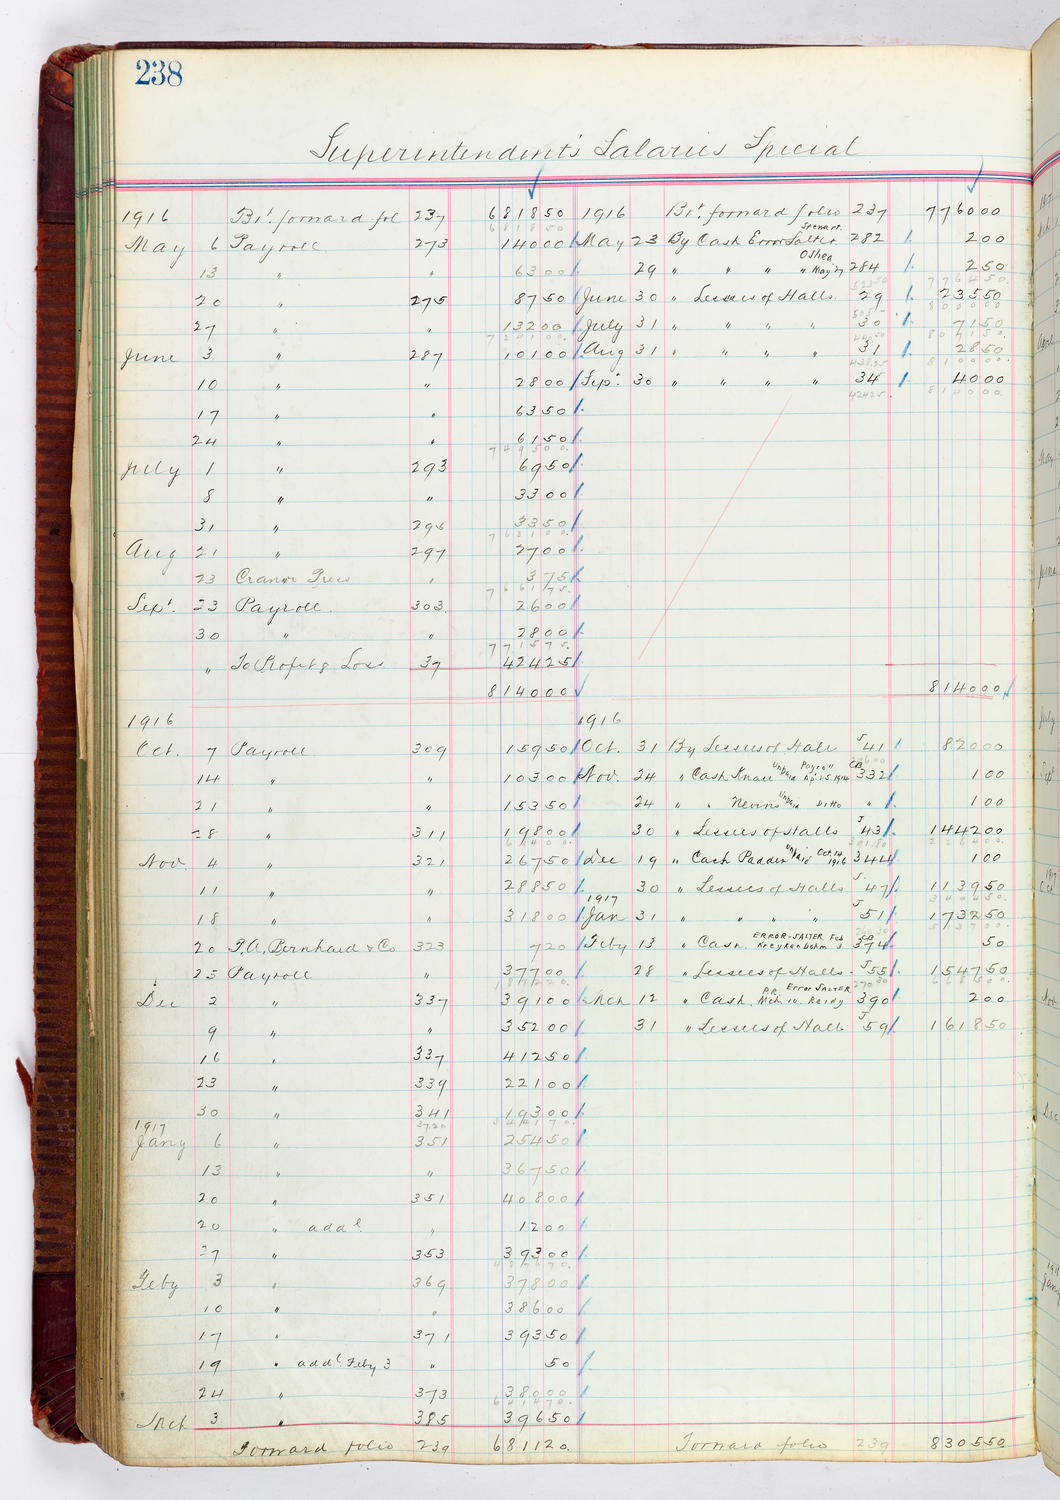 238
Superintendent's Salaries Special
1916 Brt. forward fol 237 681850 1916 Brt. forward folio 237 776000
681850 Stewart
May 6 Payroll 273 14000 May 23 By Cash Error Salter 282 200
O'Shea
13 " " 6300 29 " " " " May 27 284 250
776450
20 " 275 8750 June 30 " Lessees of Halls 29 23550
800000
27 " " 13200 July 31 " " " " 30 7150
724100 807150
June 3 " 287 10100 Aug 31 " " " " 31 2850
810000
10 " " 2800 Sep. 30 " " " " 34 4000
42425 814000
17 " " 6350
24 " " 6150
749500
July 1 " 293 6950
8 " " 3300
31 " 295 3350
763100
Aug 21 " 297 2700
23 " 375
766175
Sept. 23 Payroll 303 2600
30 " " 2800
771575
" To Profit & Loss 37 42425
814000 814000
1916 1916
Oct. 7 Payroll 309 15950 Oct. 31 By Lessees of Halls J 41 82000
14 " " 10300 Nov. 24 " Cash Knau Unpaid Payroll Apr. 1-5. 1916 CB 332 100
21 " " 15350 24 " " Nevins Unpaid Ditto " 100
28 " 311 19800 30 " Lessees of Halls J 43 144200
61400 226400
Nov. 4 " 321 26750 Dec 19 " Cash Padden Unpaid Oct. 14 1916 344 100
11 " " 28850 30 " Lessees of Halls J 47 113950
1917 340450
18 " " 31800 Jan 31 " " " " J 51 173250
513700
20 F.A. Bernhard & Co 323 720 Feby 13 " Cash. ERROR-SALTER Feb 3 Kreykenbohm CB 374 50
25 Payroll " 37700 28 " Lessees of Halls J 55 154750
187220 668500
Dec 2 " 337 39100 Mch 12 " Cash P.R. Error SALTER Mch 10. Reidy 390 200
9 " " 35200 31 " Lessees of Halls J 59 161850
16 " 337 41250
23 " 339 22100
30 " 341 19300
1917 3720 344170
Jany 6 " 351 25450
13 " " 36750
20 " 351 40800
20 " addl. " 1200
27 " 353 39300
487670
Feby 3 " 369 37800
10 " " 38600
17 " 371 39350
19 " addl. Feby 3 " 50
24 " 373 38000
641470
Mch 3 " 385 39650
Forward folio 239 681120 Forward folio 239 830550